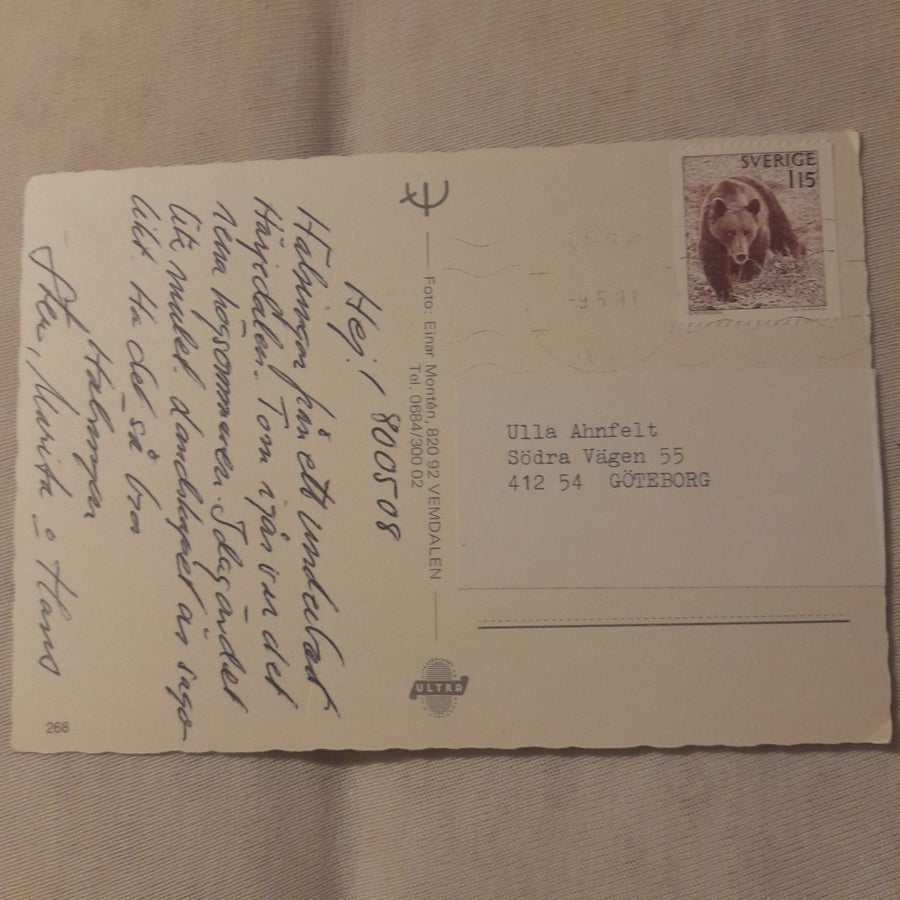 Hej! 800508
Hälsningar från ett underbart
Härjedalen. Tom igår var det
rena högsommaren. Idag är det
lite mulet. Landskapet är sig
likt. Ha det så bra
Hälsningar
Sten, Marita o Hans
268
Foto: Einar Montén, 820 92 VEMDALEN
Tel. 0684/300 02
ULTRA
SVERIGE
115
-9.5.8
Ulla Ahnfelt
Södra Vägen 55
412 54 GÖTEBORG